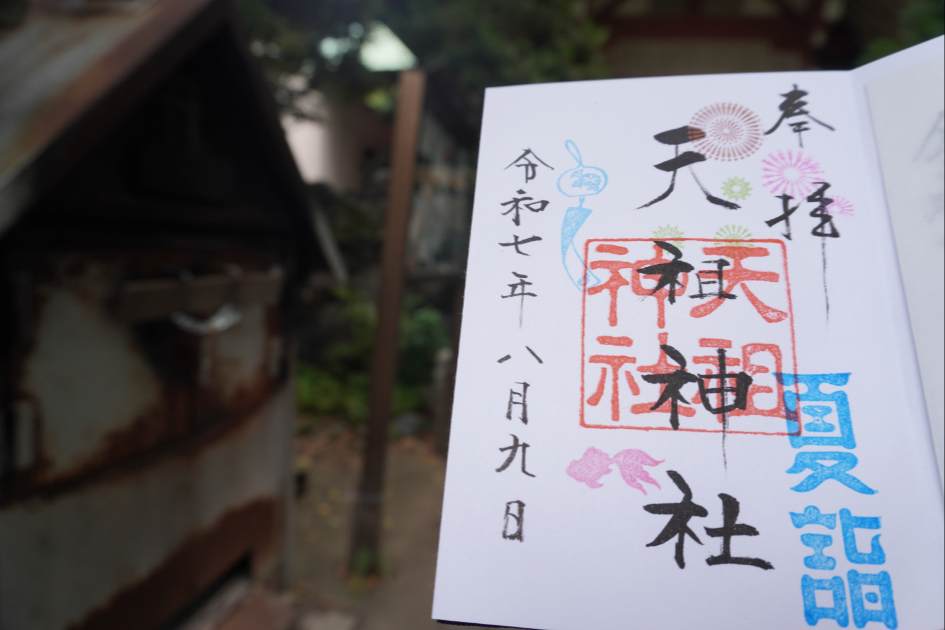 奉拝
夏詣
天祖神社
天祖神社
令和七年八月九日